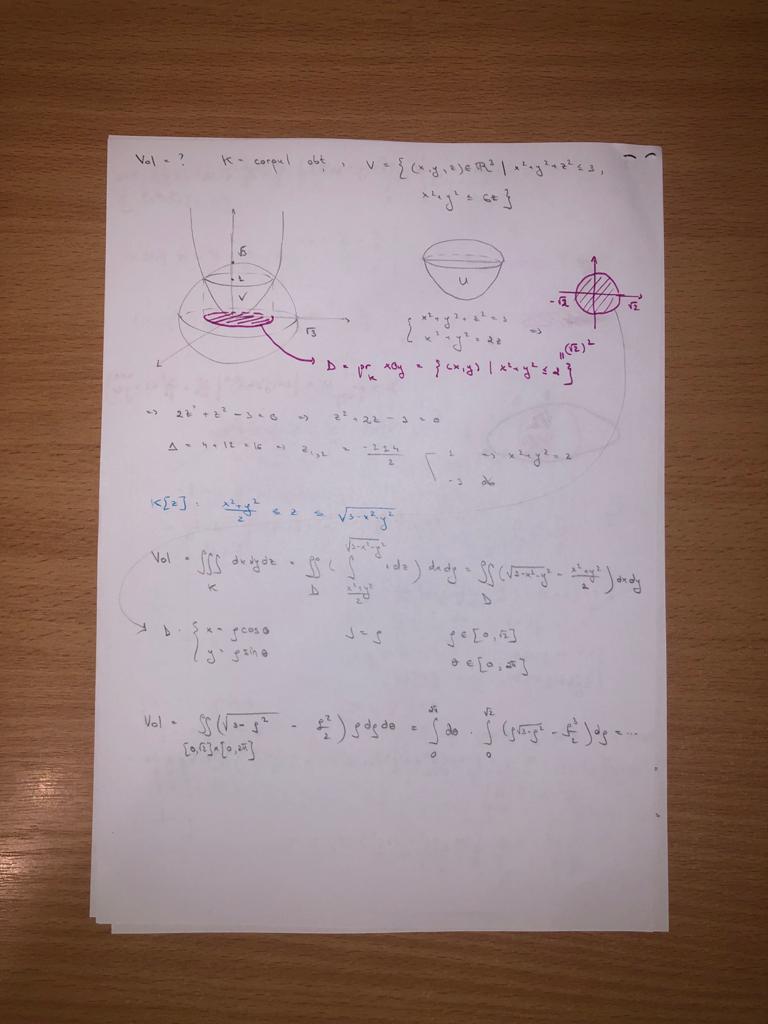 Vol = ? K = corpul obt, V = {(x,y,z) ∈ ℝ³ | x²+y²+z² ≤ 3,
x²+y² ≤ 6z}
√3
1
V
√3
U
-√2 √2
{ x²+y²+z² = 3
x²+y² = 2z =>
D = pr_K xOy = {(x,y) | x²+y² ≤ 2} " (√2)²
=> 2z + z² - 3 = 0 => z² + 2z - 3 = 0
Δ = 4 + 12 = 16 => z₁,₂ = (-2±4)/2 1 => x²+y² = 2
-3
K[z]: (x²+y²)/2 ≤ z ≤ √(3-x²-y²)
Vol = ∭_K dxdydz = ∬_D (∫_{(x²+y²)/2}^{√(3-x²-y²)} 1dz) dxdy = ∬_D (√(3-x²-y²) - (x²+y²)/2) dxdy
D: { x = ρcosθ J = ρ ρ ∈ [0,√2]
y = ρsinθ θ ∈ [0,2π]
Vol = ∬_{[0,√2]×[0,2π]} (√(3-ρ²) - ρ²/2) ρdρdθ = ∫_0^{2π} dθ · ∫_0^{√2} (ρ√(3-ρ²) - ρ³/2) dρ = ...